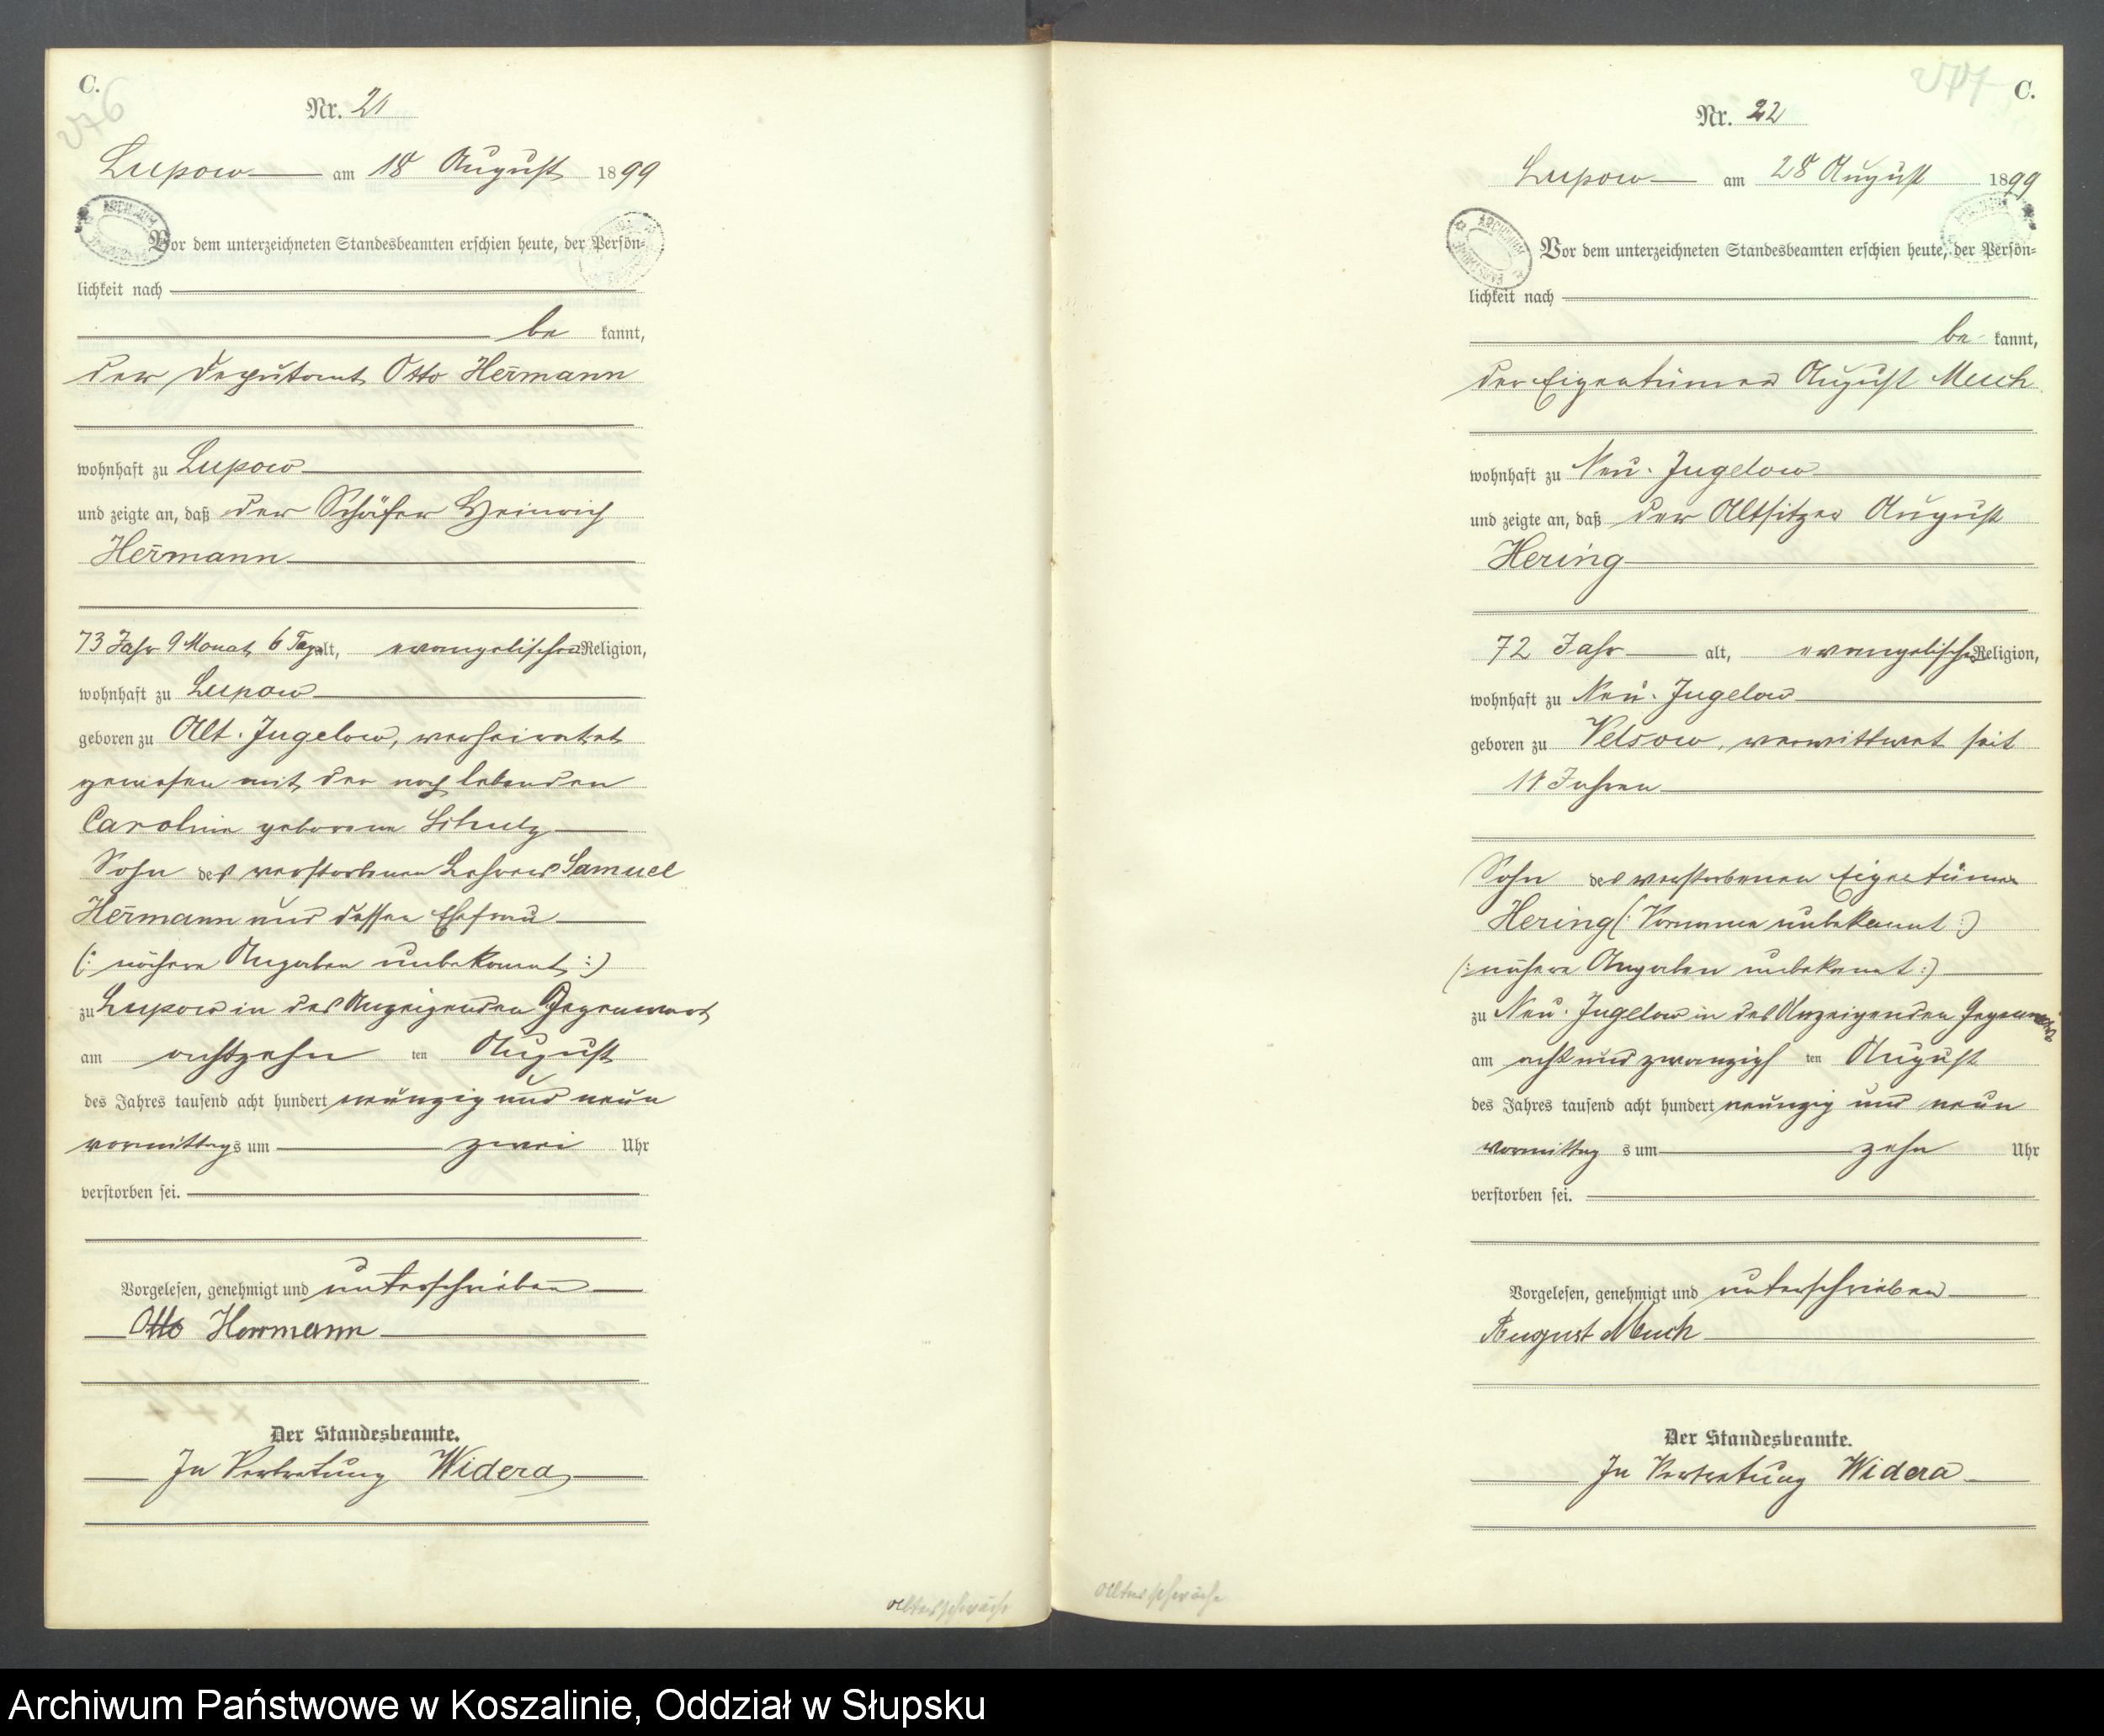 C.
Nr. 21
Lupow am 18 August 1899
Vor dem unterzeichneten Standesbeamten erschien heute, der Persön-
lichkeit nach
be kannt,
der Deputant Otto Herrmann
wohnhaft zu Lupow
und zeigte an, daß der Schäfer Heinrich
Herrmann
73 Jahr 9 Monat 6 Tage alt, evangelischer Religion,
wohnhaft zu Lupow
geboren zu Alt-Jugelow, verheiratet
gewesen mit der noch lebenden
Caroline geborene Schulz
Sohn des verstorbenen Lehrers Samuel
Herrmann und dessen Ehefrau
(: nähere Angaben unbekannt :)
zu Lupow in des Anzeigenden Gegenwart
am achtzehn ten August
des Jahres tausend acht hundert neunzig und neun
vormittags um zwei Uhr
verstorben sei.
Vorgelesen, genehmigt und unterschrieben
Otto Herrmann
Der Standesbeamte.
In Vertretung Widera
Altersschwäche
C.
Nr. 22
Lupow am 28 August 1899
Vor dem unterzeichneten Standesbeamten erschien heute, der Persön-
lichkeit nach
be kannt,
der Eigentümer August Much
wohnhaft zu Neu-Jugelow
und zeigte an, daß der Altsitzer August
Hering
72 Jahr alt, evangelischer Religion,
wohnhaft zu Neu-Jugelow
geboren zu Velsow, verwittwet seit
11 Jahren
Sohn des verstorbenen Eigentümer
Hering (: Vorname unbekannt :)
(: nähere Angaben unbekannt :)
zu Neu-Jugelow in des Anzeigenden Gegenwart
am acht und zwanzigs ten August
des Jahres tausend acht hundert neunzig und neun
vormittag s um zehn Uhr
verstorben sei.
Vorgelesen, genehmigt und unterschrieben
August Much
Der Standesbeamte.
In Vertretung Widera
Altersschwäche
Archiwum Państwowe w Koszalinie, Oddział w Słupsku